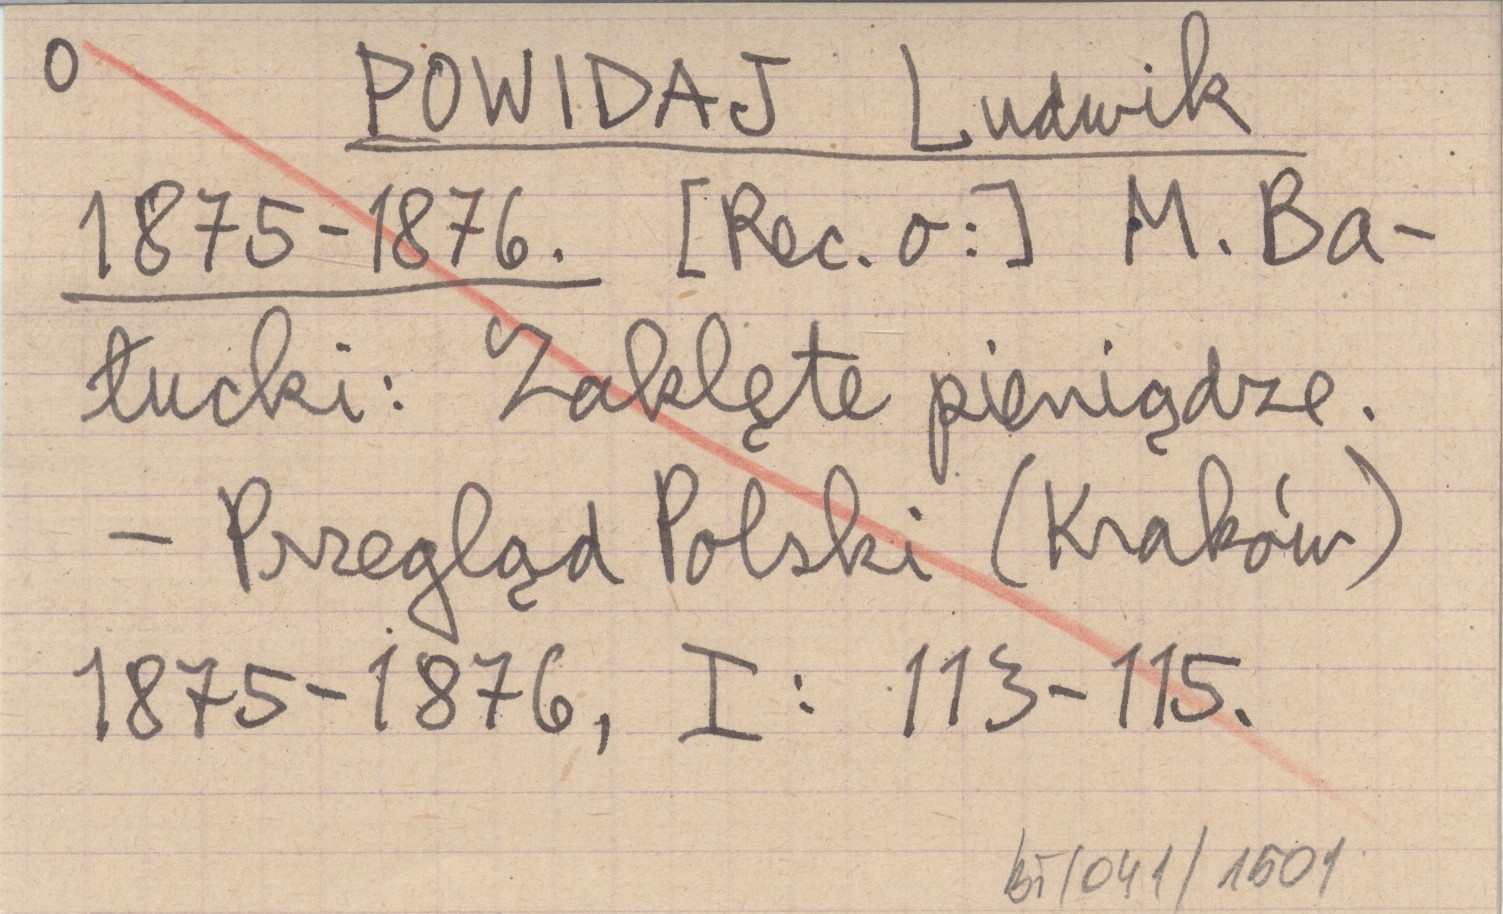 O POWIDAJ Ludwik
1875-1876. [Rec. o:] M. Ba-
łucki: Zaklęte pieniądze.
- Przegląd Polski (Kraków)
1875-1876, I: 113-115.
bi/041/1501